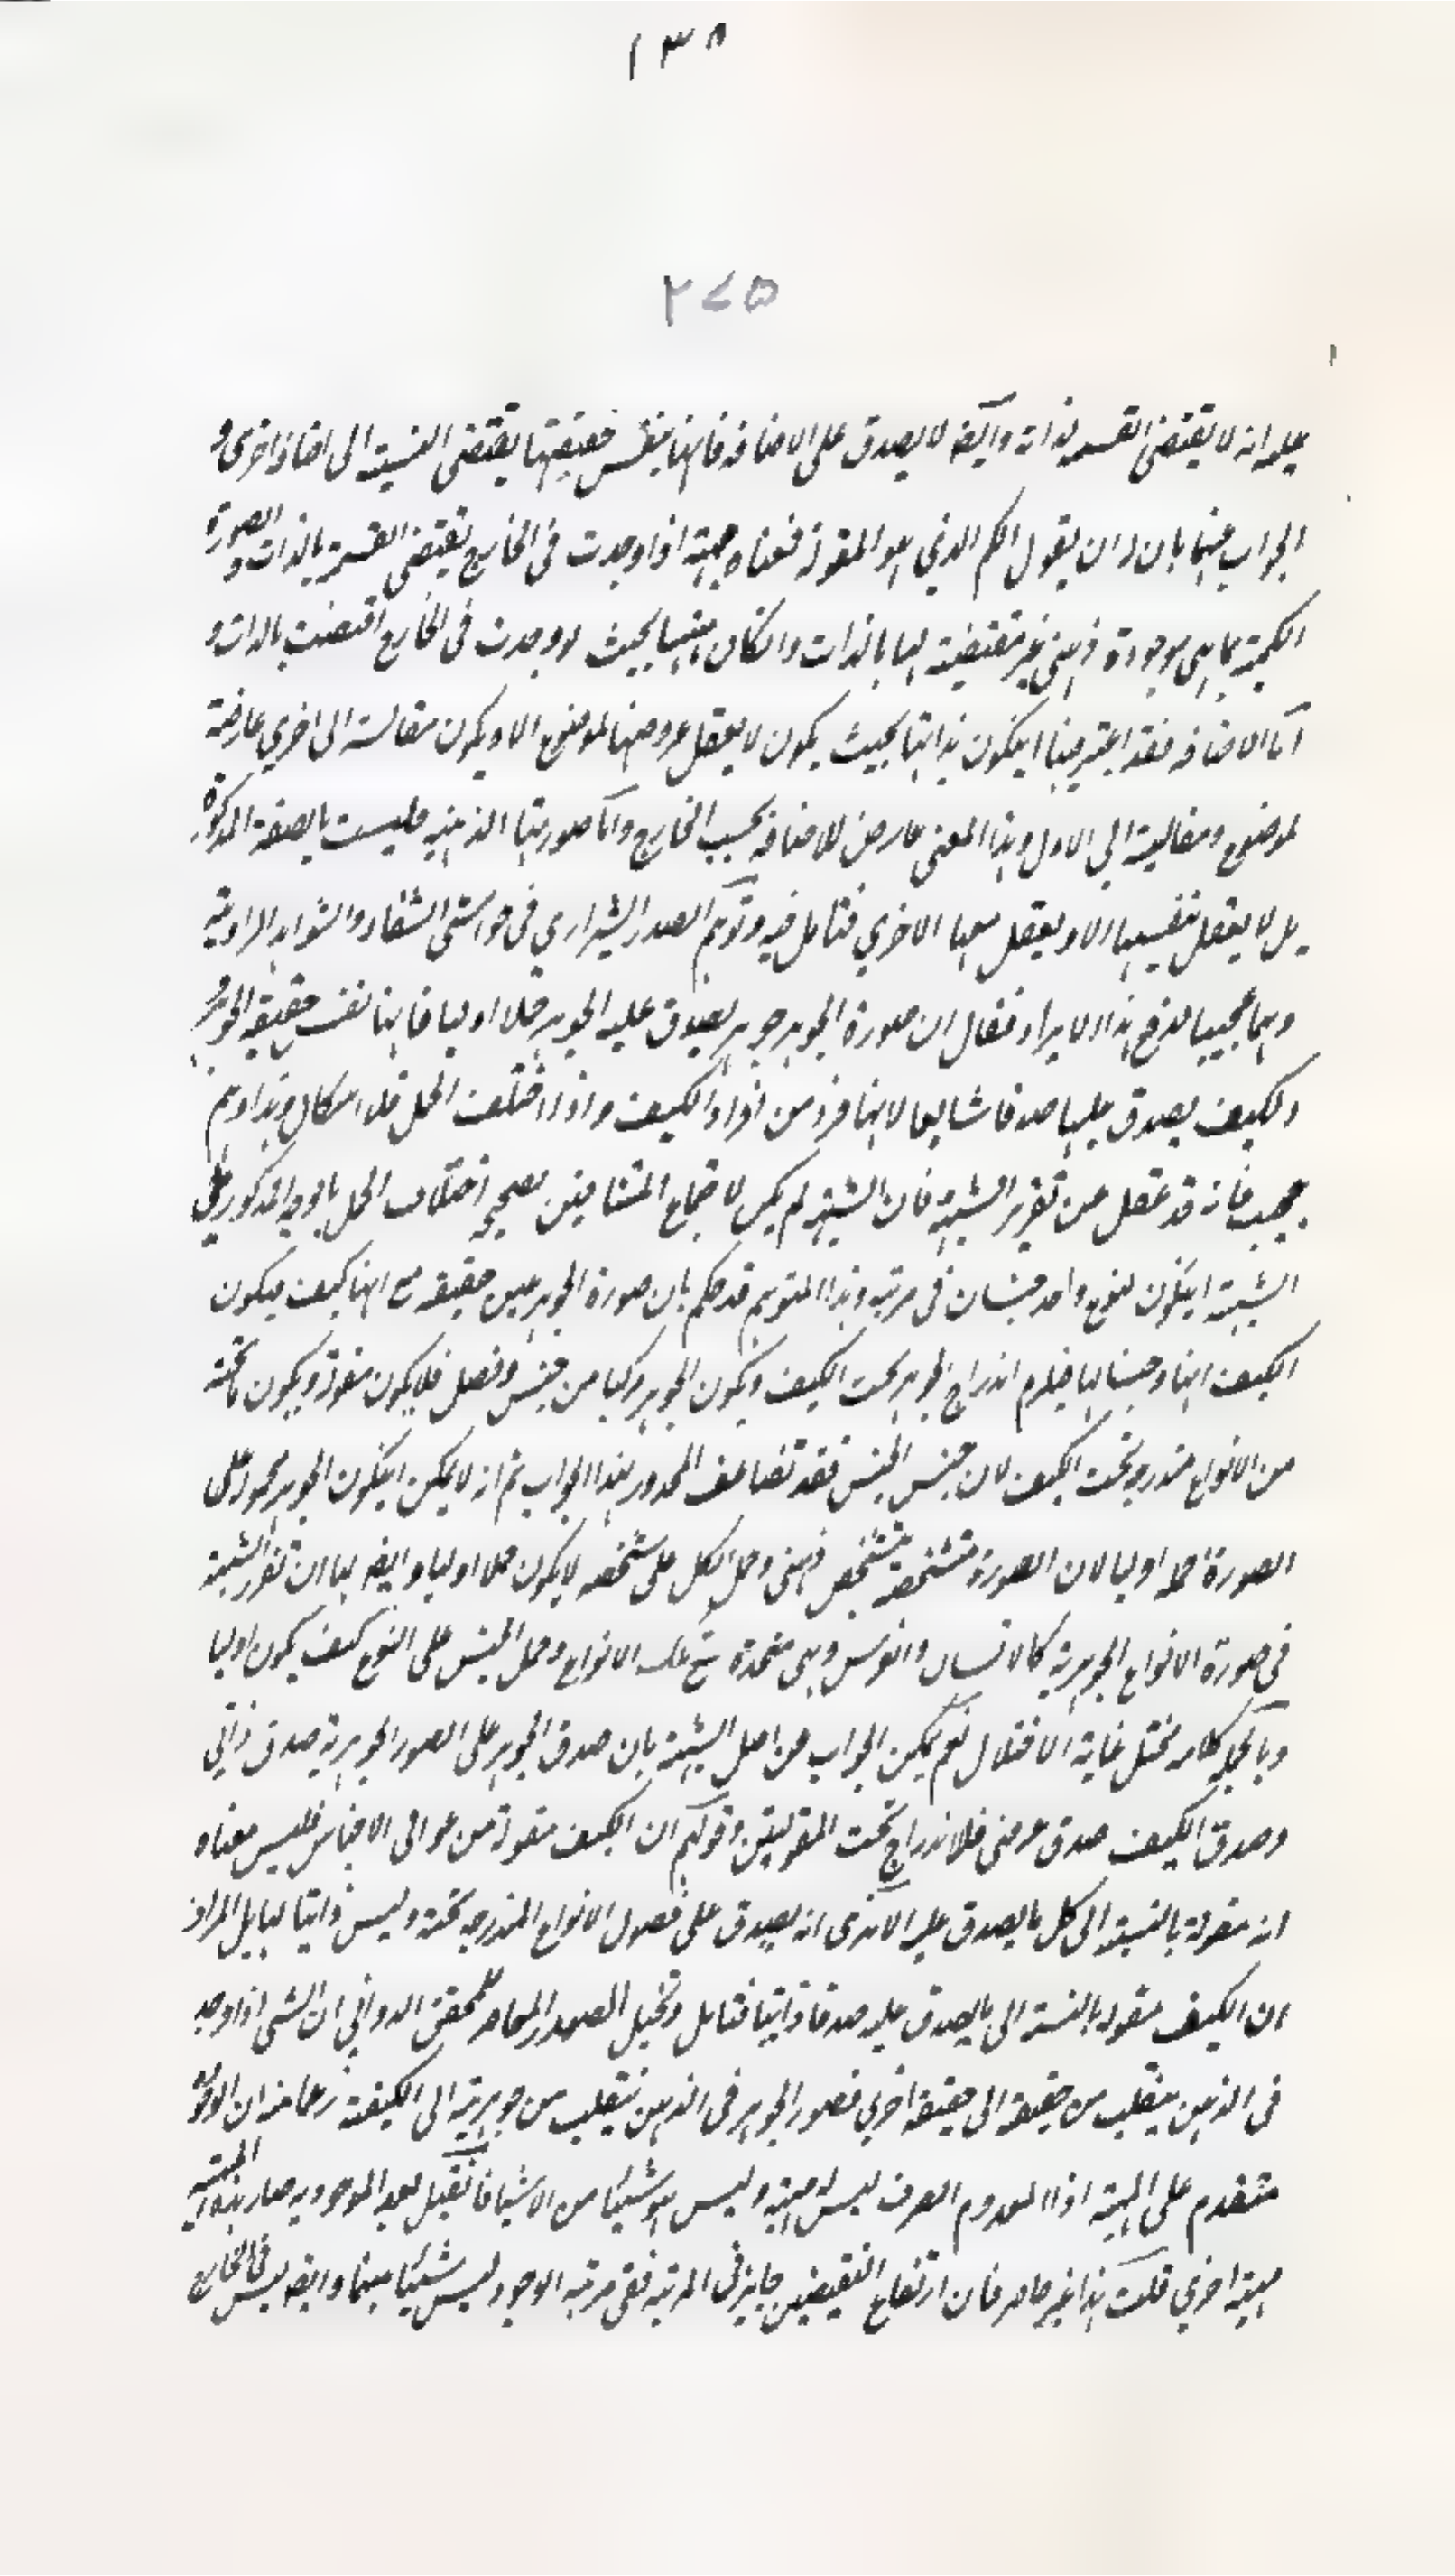 ١٣٨
٢٧٥
عليه انه لا يقتضى القسمة لذاته وايضا لا يصدق على الاضافة فانها بنفس حقيقتها يقتضى النسبة الى اضافة اخرى و
الجواب عنهما بان له ان يقول الكم الذي هو المقولة فمعناه مهية اذا وجدت فى الخارج يقتضى القسمة بالذات والصورة
الكمية بما هى موجودة ذهنى غير مقتضية لها بالذات وانكان مهيتها بحيث لو وجدت فى الخارج اقتضت بالذات و
اما الاضافة فقد اعتبر فيها ايكون بذاتها بحيث يكون لا يعقل عروضها لموضع الا ويكون مقالسة الى اخرى عارضة
لموضع ومقاليسة الى الاول وهذا المعنى عارض للاضافة بحسب الخارج واما صورتها الذهنية فليست بالصفة المذكورة
بل لا يعقل بنفسها الا ويعقل معها الاخرى فتامل فيه وتوهم الصدر الشيرازي فى حواشى الشفاء والشواهد الراوبية
وهما عجيبا فدفع هذا الايراد فقال ان صورة الجوهر جوهر يصدق عليه الجوهر حملا اوليا فانها نفس حقيقة الجوهر و
الكيف يصدق عليها صدقا شايعا لانها فرد من افراد الكيف واذا اختلف الحمل فلا اشكال وهذا وهم
عجيب فانه قد غفل عن تقرير الشبهة فان الشبهة لم يكن لاجتماع المتنافيين يصحح اختلاف الحمل بالوجه المذكور بل
الشبهة ايكون لنوع واحد جنسان فى مرتبة وهذا المتوهم قد حكم بان صورة الجوهر عين حقيقة مع انها كيف فيكون
الكيف ايضا وجنسا لها فيلزم اندراج الجوهر تحت الكيف ويكون الجوهر مركبا من جنس وفصل فلا يكون مقولة ويكون ما تحته
من الانواع مندرجة تحت الكيف لان جنس الجنس جنس فقد تضاعف المحذور بهذا الجواب ثم انه لا يمكن ايكون الجوهر محمولا على
الصورة حملا اوليا لان الصورة متشخصة بتشخص ذهنى وحمل الكل على شخصه لا يكون حملا اوليا وايضا لنا ان نقرر الشبهة
فى صورة الانواع الجوهرية كالانسان والفرس وهى متحدة مع تلك الانواع وحمل الجنس على النوع كيف يكون اوليا
وبالجملة كلامه مختل غاية الاختلال نعم يمكن الجواب عن اصل الشبهة بان صدق الجوهر على الصور الجوهرية صدق ذاتي
وصدق الكيف صدق عرضى فلا اندراج تحت المقولتين وقولهم ان الكيف مقولة من عوالى الاجناس فليس معناه
انه مقولة بالنسبة الى كل ما يصدق عليه الا ترى انه يصدق على فصول الانواع المندرجة تحته وليس ذاتيا لها بل المراد
ان الكيف مقولة بالنسبة الى ما يصدق عليه صدقا ذاتيا فتامل وتخيل الصدر المعاصر للمحقق الدواني ان الشى اذا وجد
فى الذهن ينقلب من حقيقة الى حقيقة اخرى فصور الجوهر فى الذهن ينقلب من جوهرية الى الكيفية زعما منه ان الوجود
متقدم على المهية اذ المعدوم الصرف ليس له مهية وليس هو شيئا من الاشياء فان قيل بعد الموجودية صار بهذه المهية
مهية اخرى قلت هذا غير حاصر فان ارتفاع النقيضين جايز فى المرتبة ففى مرتبة الوجود ليس شيئا منهما وايضا ليس فى الخارج